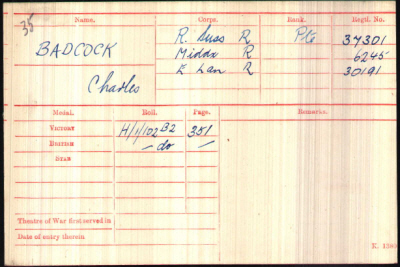 35
Name. Corps. Rank. Regtl. No.
BADCOCK R. Suss R Pte 34301
Middx R 6245
Charles E Lan R 30191
Medal. Roll. Page. Remarks.
VICTORY H/1/102 B2 351
BRITISH — do —
STAR
Theatre of War first served in
Date of entry therein